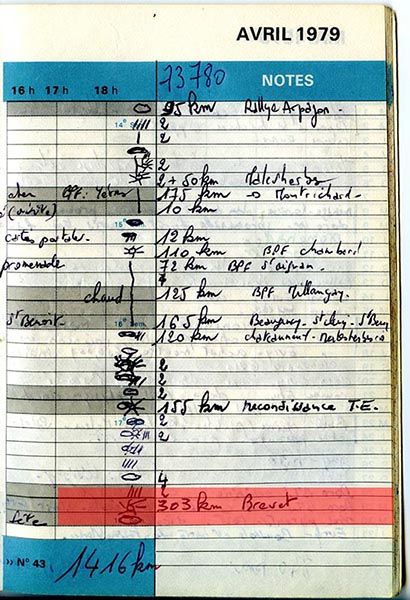 AVRIL 1979
73780 NOTES
16 h 17 h 18 h
95 km Rallye Arpajon -
14e 2
2
2
2 + 50 km Malesherbes
BPF: 175 km → Montrichard -
10 km
15e
cartes postales. 12 km
110 km BPF Chambord
promenade 72 km BPF St aignan.
4
chaud 125 km BPF
St Benoît. 16e sem. 165 km Beaugency - St - St Benoit
120 km - Malesherbes
2
2
2
155 km reconnaissance T.E.
17e 2
2
4
2
303 km Brevet
» N° 43 1416 km